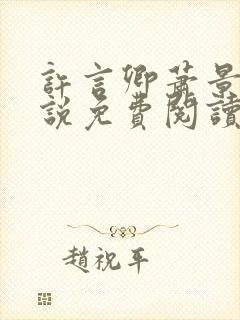 許言卿蕭景
說免費閱讀
趙祝平